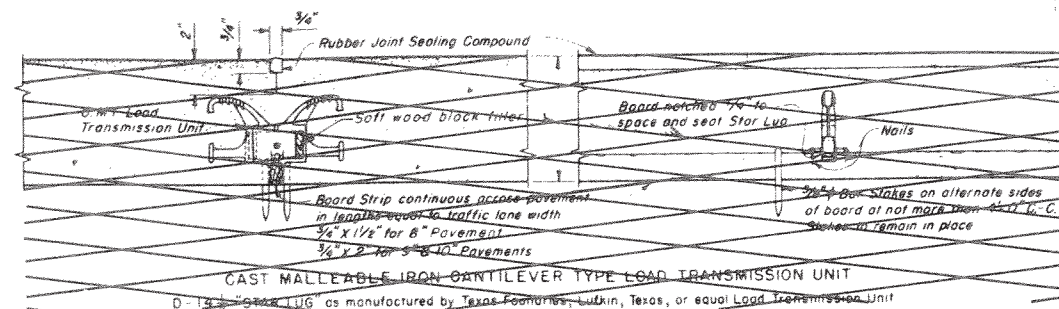 3/4"
2"
3/4"
Rubber Joint Sealing Compound
Load
Transmission Unit
Soft wood block filler
Board notched 1/4" to
space and seat Star Lug
Nails
Board Strip continuous across pavement
in lengths equal to traffic lane width
3/4" X 1 1/2" for 8" Pavement
3/4" X 2" for 9" & 10" Pavements
Bar Stakes on alternate sides
of board at not more than C.-C.
Stakes to remain in place
CAST MALLEABLE IRON CANTILEVER TYPE LOAD TRANSMISSION UNIT
"STAR LUG" as manufactured by Texas Foundries, Lufkin, Texas, or equal Load Transmission Unit